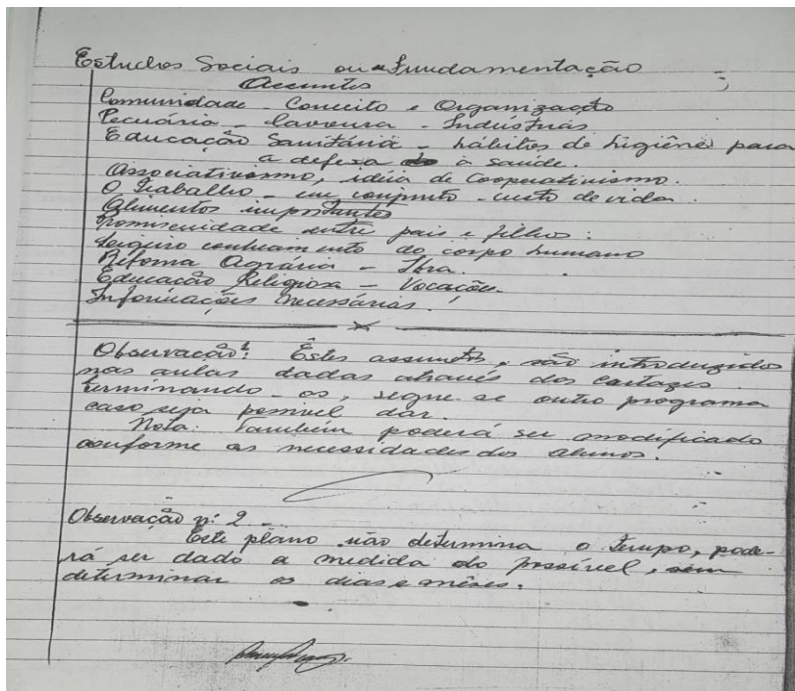 Estudos Sociais ou a Fundamentação
Assuntos
Comunidade - Conceito e Organização
Pecuária - Lavoura - Indústrias
Educação Sanitária - hábitos de higiêne para
a defesa à saúde.
Associativismo, idéia de Cooperativismo.
O Trabalho - em conjunto - custo de vida.
Alimentos importantes
Promiscuidade entre pais e filhos:
Ligeiro conhecimento do corpo humano
Reforma Agrária - Ibra.
Educação Religiosa - Vocações.
Informações necessárias.
Observação 1: Êstes assuntos, são introduzidos
nas aulas dadas através dos cartazes.
Terminando-os, segue-se outro programa
caso seja possível dar.
Nota: Também poderá ser modificado
conforme as necessidades dos alunos.
Observação nº 2 -
Êste plano não determina o tempo, pode-
rá ser dado a medida do possível, sem
determinar os dias e mêses.